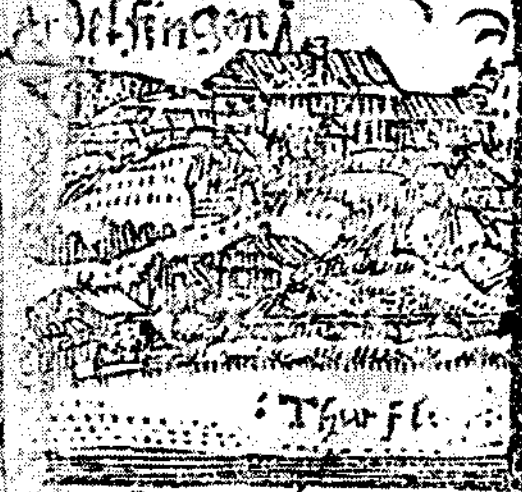 Andelfingen
Thur fl: